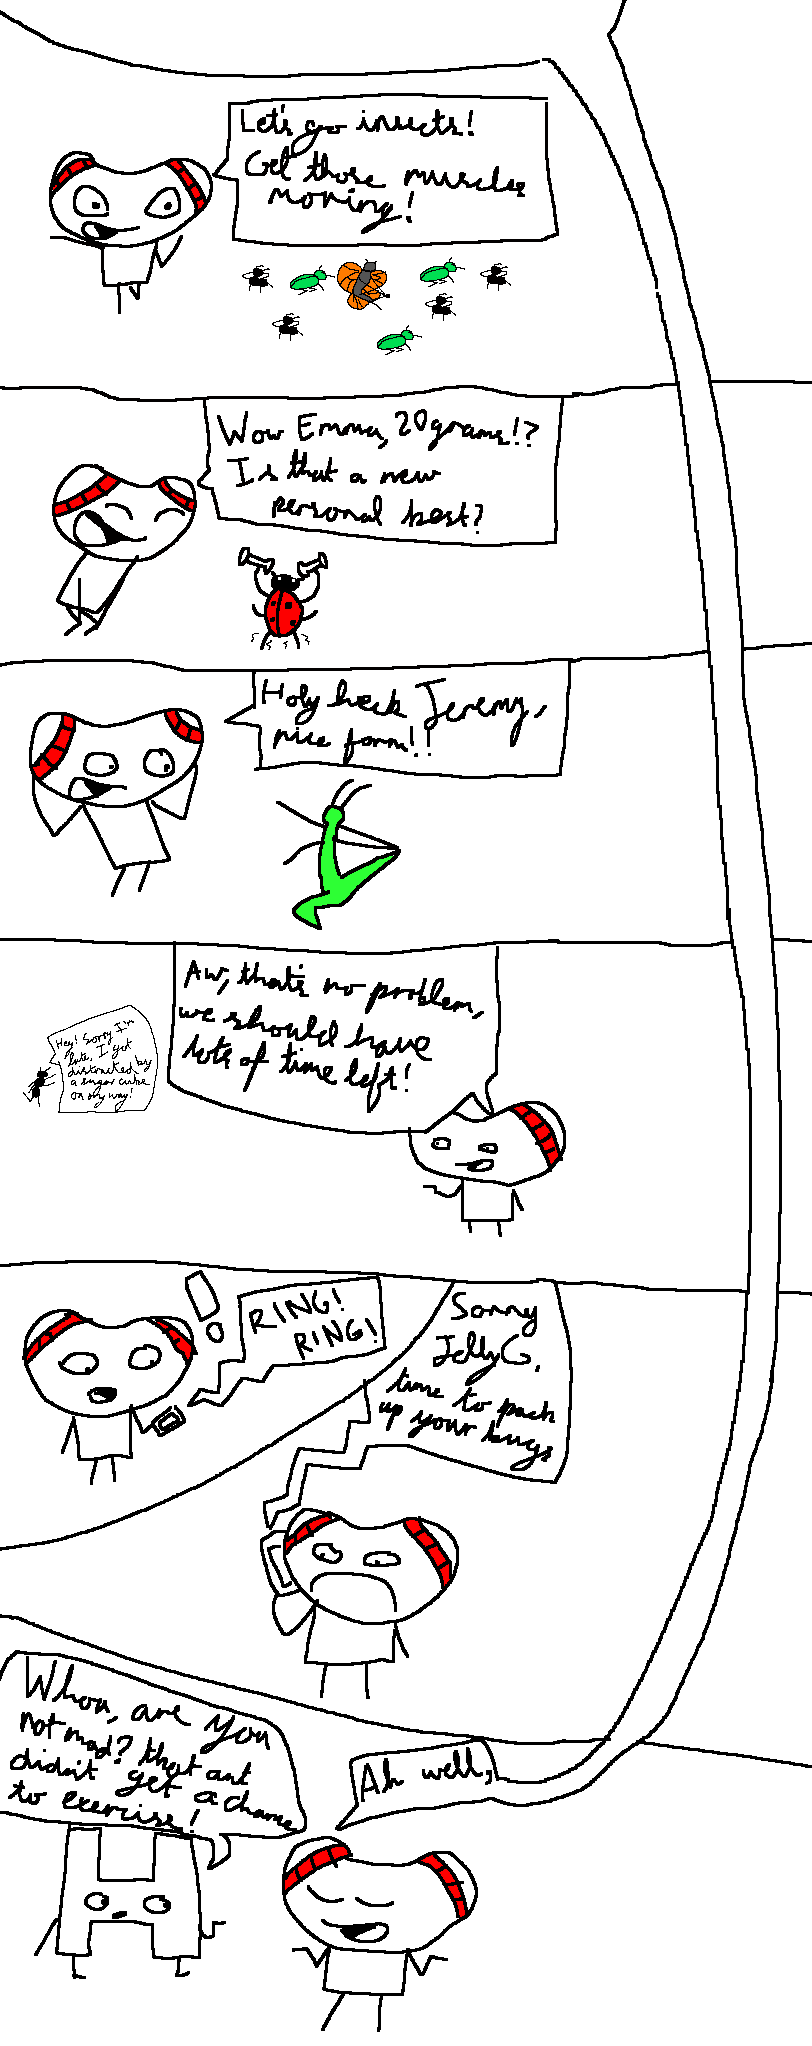 Let's go insects!
Get those muscles
moving!
Wow Emma, 20grams!?
Is that a new
personal best?
Holy heck Jeremy,
nice form!!
Hey! Sorry I'm
late, I got
distracted by
a sugar cube
on my way!
Aw, that's no problem,
we should have
lots of time left!
RING!
RING!
Sorry
JellyG,
time to pack
up your bugs
Whoa, are you
not mad? that ant
didn't get a chance
to exercise!
Ah well,